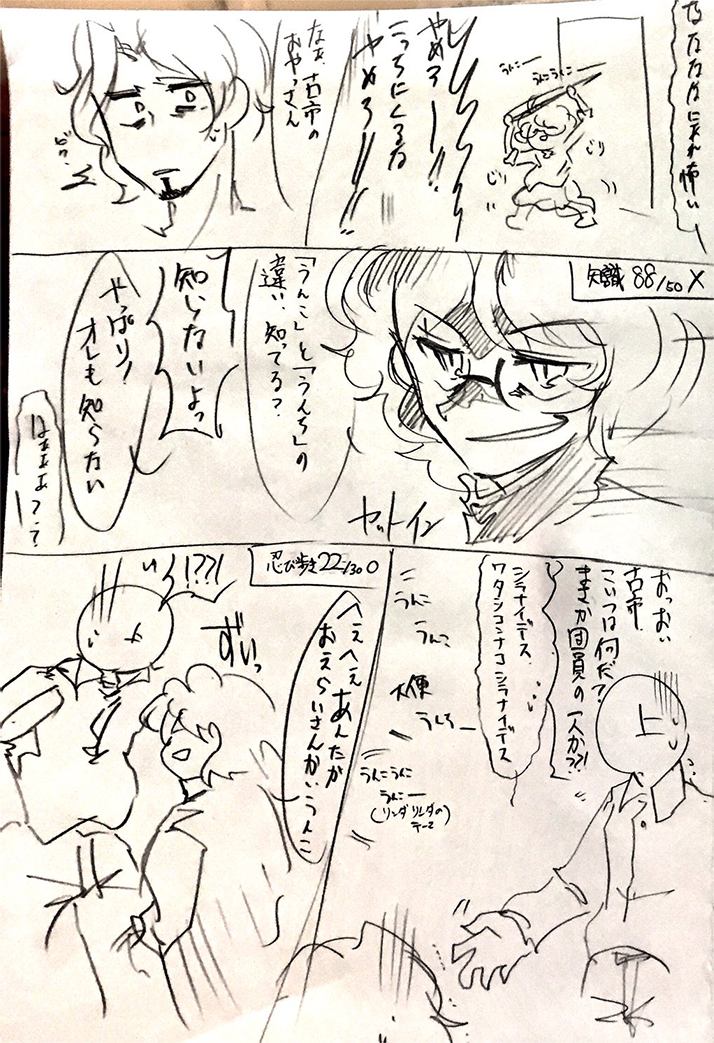 うんこー
うんこうんこー
じり
じり
やめろー!!
こっちにくるな
やめろ
なぁ、古市の
おやっさん
知識 88/50 ×
「うんこ」と「うんち」の
違い、知ってる?
知らないよっ
やっぱり!
オレも知らない
はぁぁぁ〜?
カットイン
おっおい
古市、
こいつは何だ?
まさか団員の一人かっ?!
シラナイデス
ワタシコンナコ シラナイデス
上
うんこ
うんこ
大便
うんちー
うんこうんこ
うんこー
(リンダリンダの
テーマ)
忍び歩き 22/30 ○
へぇへぇ あんたが
おえらいさんかいうんこ
ずいっ
!??!
上